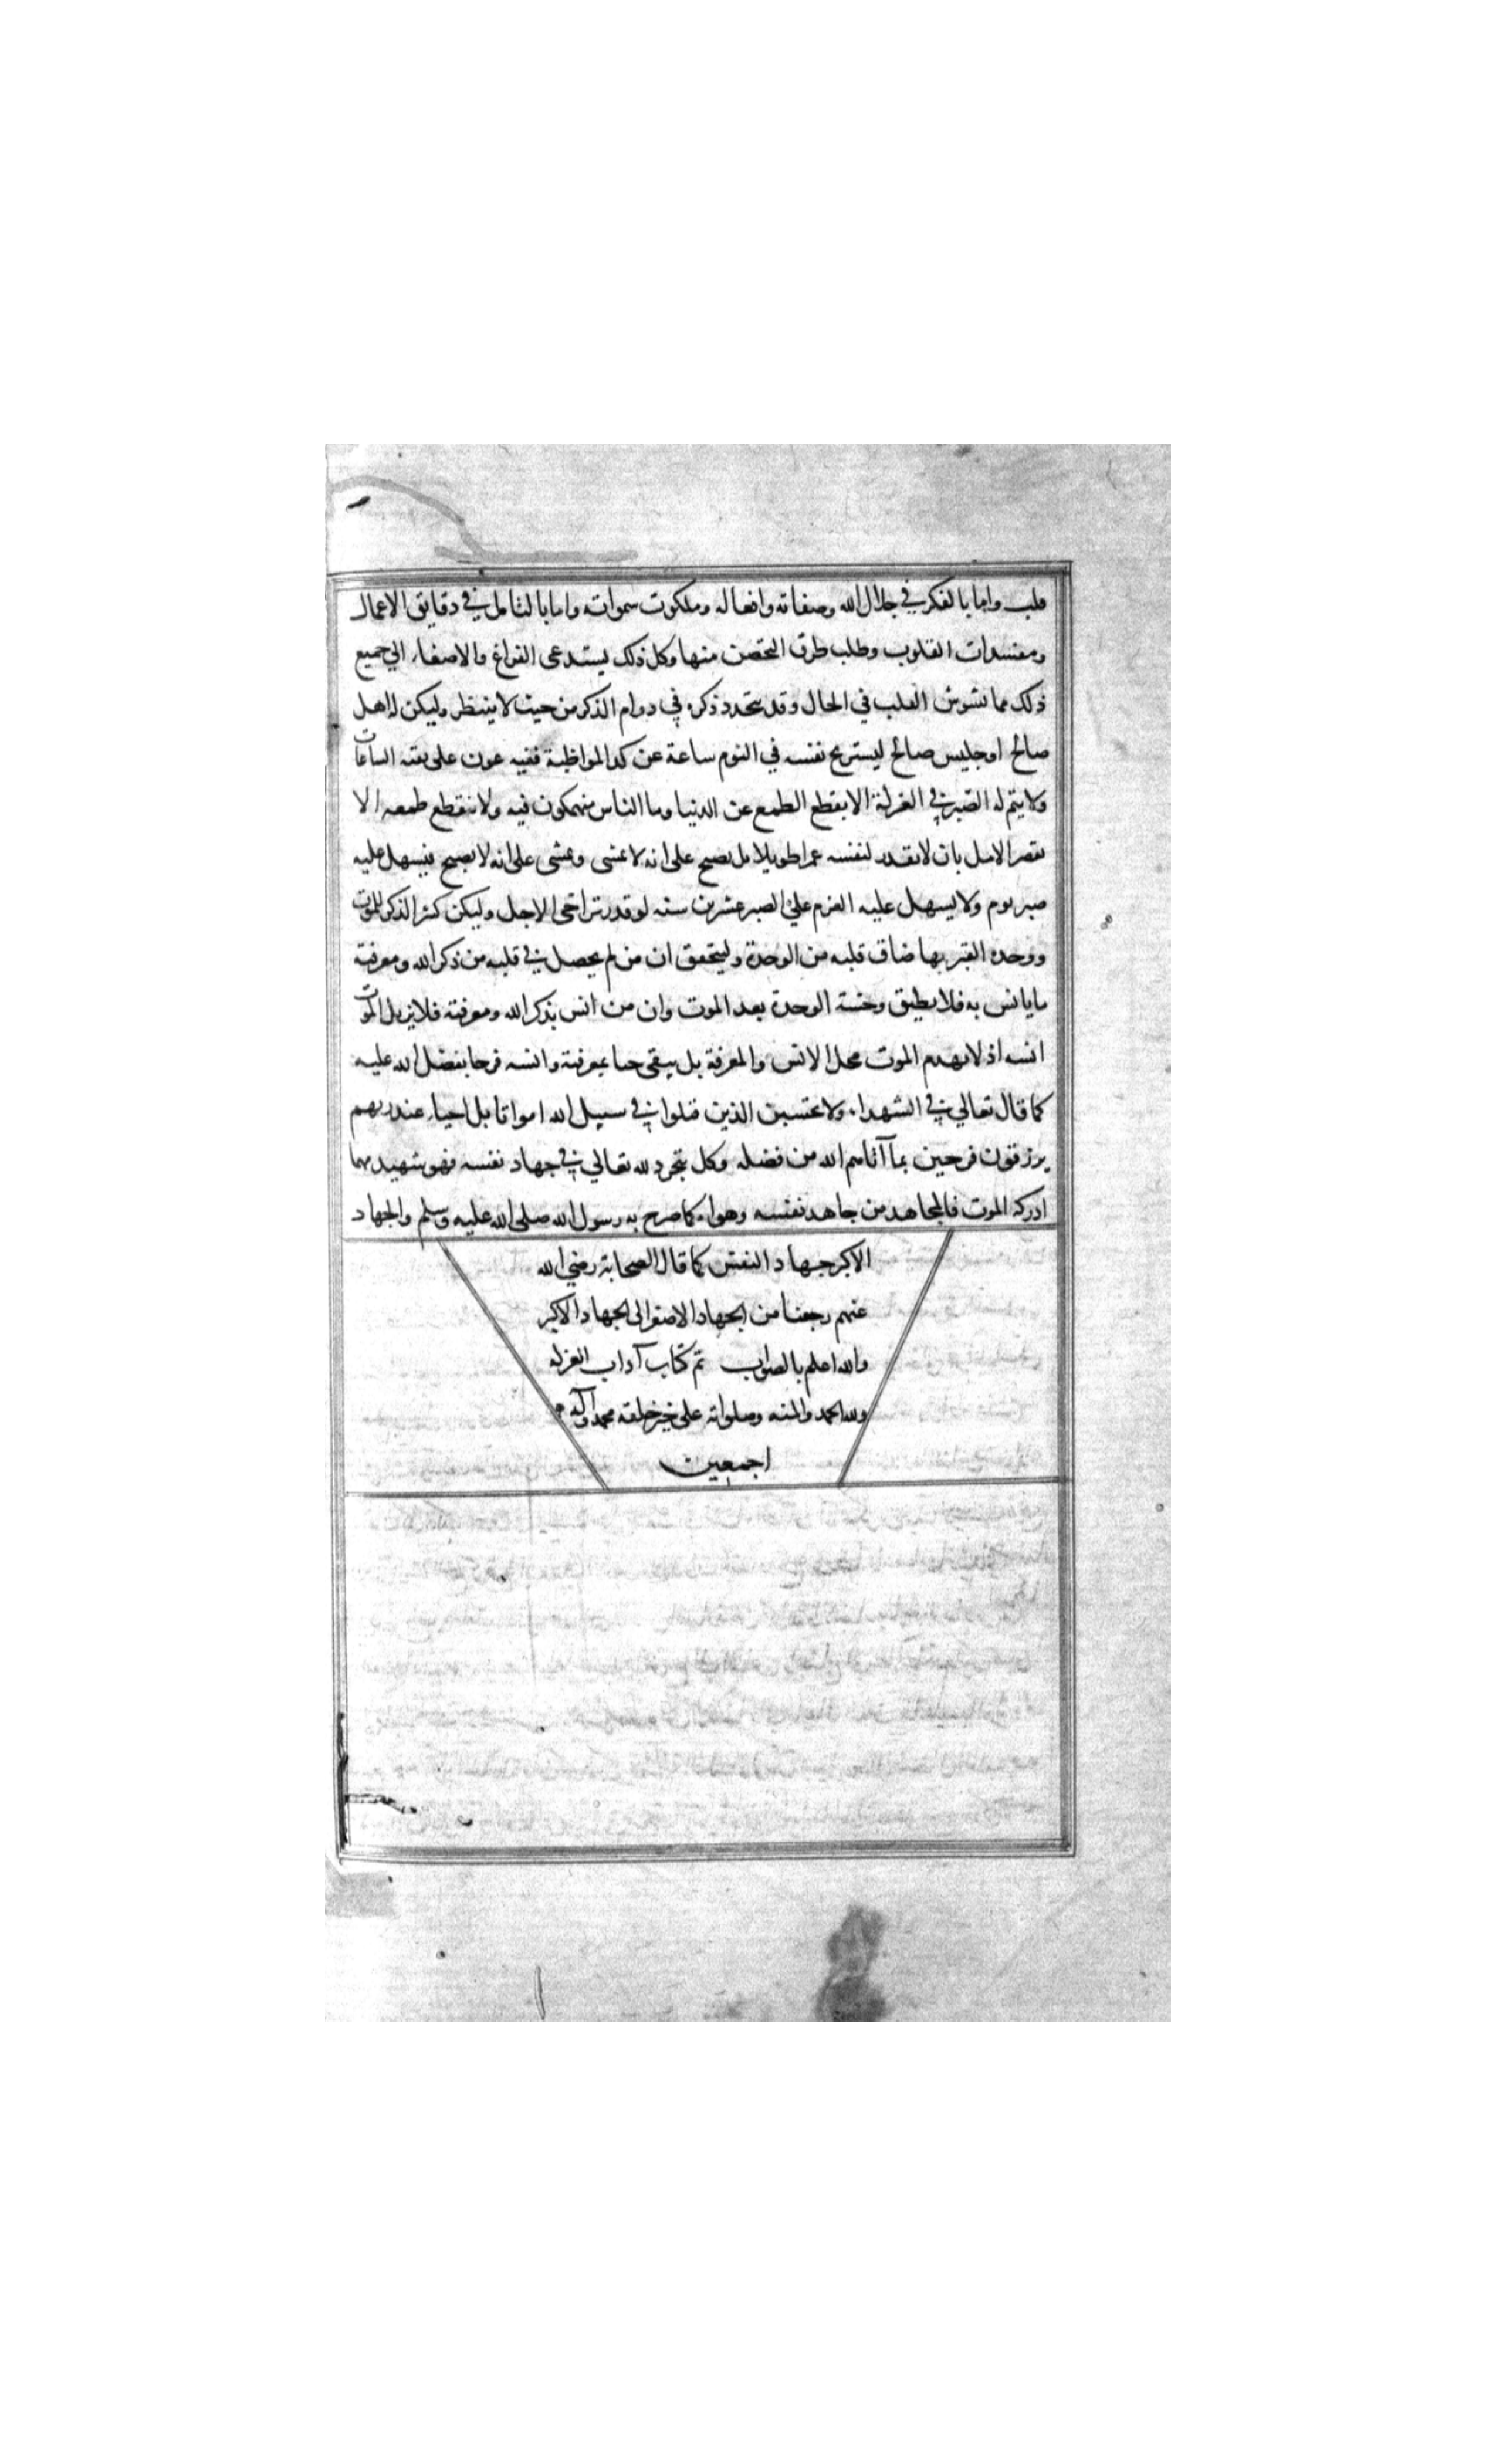 قلب واما بالفكر في جلال الله وصفاته وافعاله وملكوت سمواته واما بالتامل في دقايق الاعمال
ومفسدات القلوب وطلب طرق التحصن منها وكل ذلك يستدعى الفراغ والاصغاء الي جميع
ذلك مما يشوش القلب في الحال وقد يتجدد ذكره في دوام الذكر من حيث لا ينتظر وليكن له اهل
صالح او جليس صالح ليستريح نفسه في اليوم ساعة عن كد المواظبة ففيه عون على بقية الساعات
ولا يتم له الصبر في العزلة الا بقطع الطمع عن الدنيا وما الناس منهمكون فيه ولا ينقطع طمعه الا
بقصر الامل بان لا يقدر لنفسه عمرا طويلا بل يصبح على انه لا يمشى ويمشى على انه لا يصبح فيسهل عليه
صبر يوم ولا يسهل عليه العزم علي الصبر عشرين سنه لو قدر تراخى الاجل وليكن كثير الذكر للموت
ووحدة القبر بها ضاق قلبه من الوحدة وليتحقق ان من لم يحصل في قلبه من ذكر الله ومعرفته
ما يانس به فلا يطيق وحشة الوحدة بعد الموت وان من انس بذكر الله ومعرفته فلا يزيل الموت
انسه اذ لا يهدم الموت محل الانس والمعرفة بل يبقى حيا بمعرفته وانسه فرحا بفضل الله عليه
كما قال تعالي في الشهداء ولا تحتسبن الذين قتلوا في سبيل الله امواتا بل احياء عند ربهم
يرزقون فرحين بما آتاهم الله من فضله وكل متجرد لله تعالي في جهاد نفسه فهو شهيد مهما
ادركه الموت فالمجاهد من جاهد نفسه وهواه كما صرح به رسول الله صلى الله عليه وسلم والجهاد
الاكبر جهاد النفس كما قال الصحابة رضي الله
عنهم رجعنا من الجهاد الاصغر الى الجهاد الاكبر
والله اعلم بالصواب تم كتاب آداب العزلة
ولله الحمد والمنه وصلواته على خير خلقه محمد وآله
اجمعين